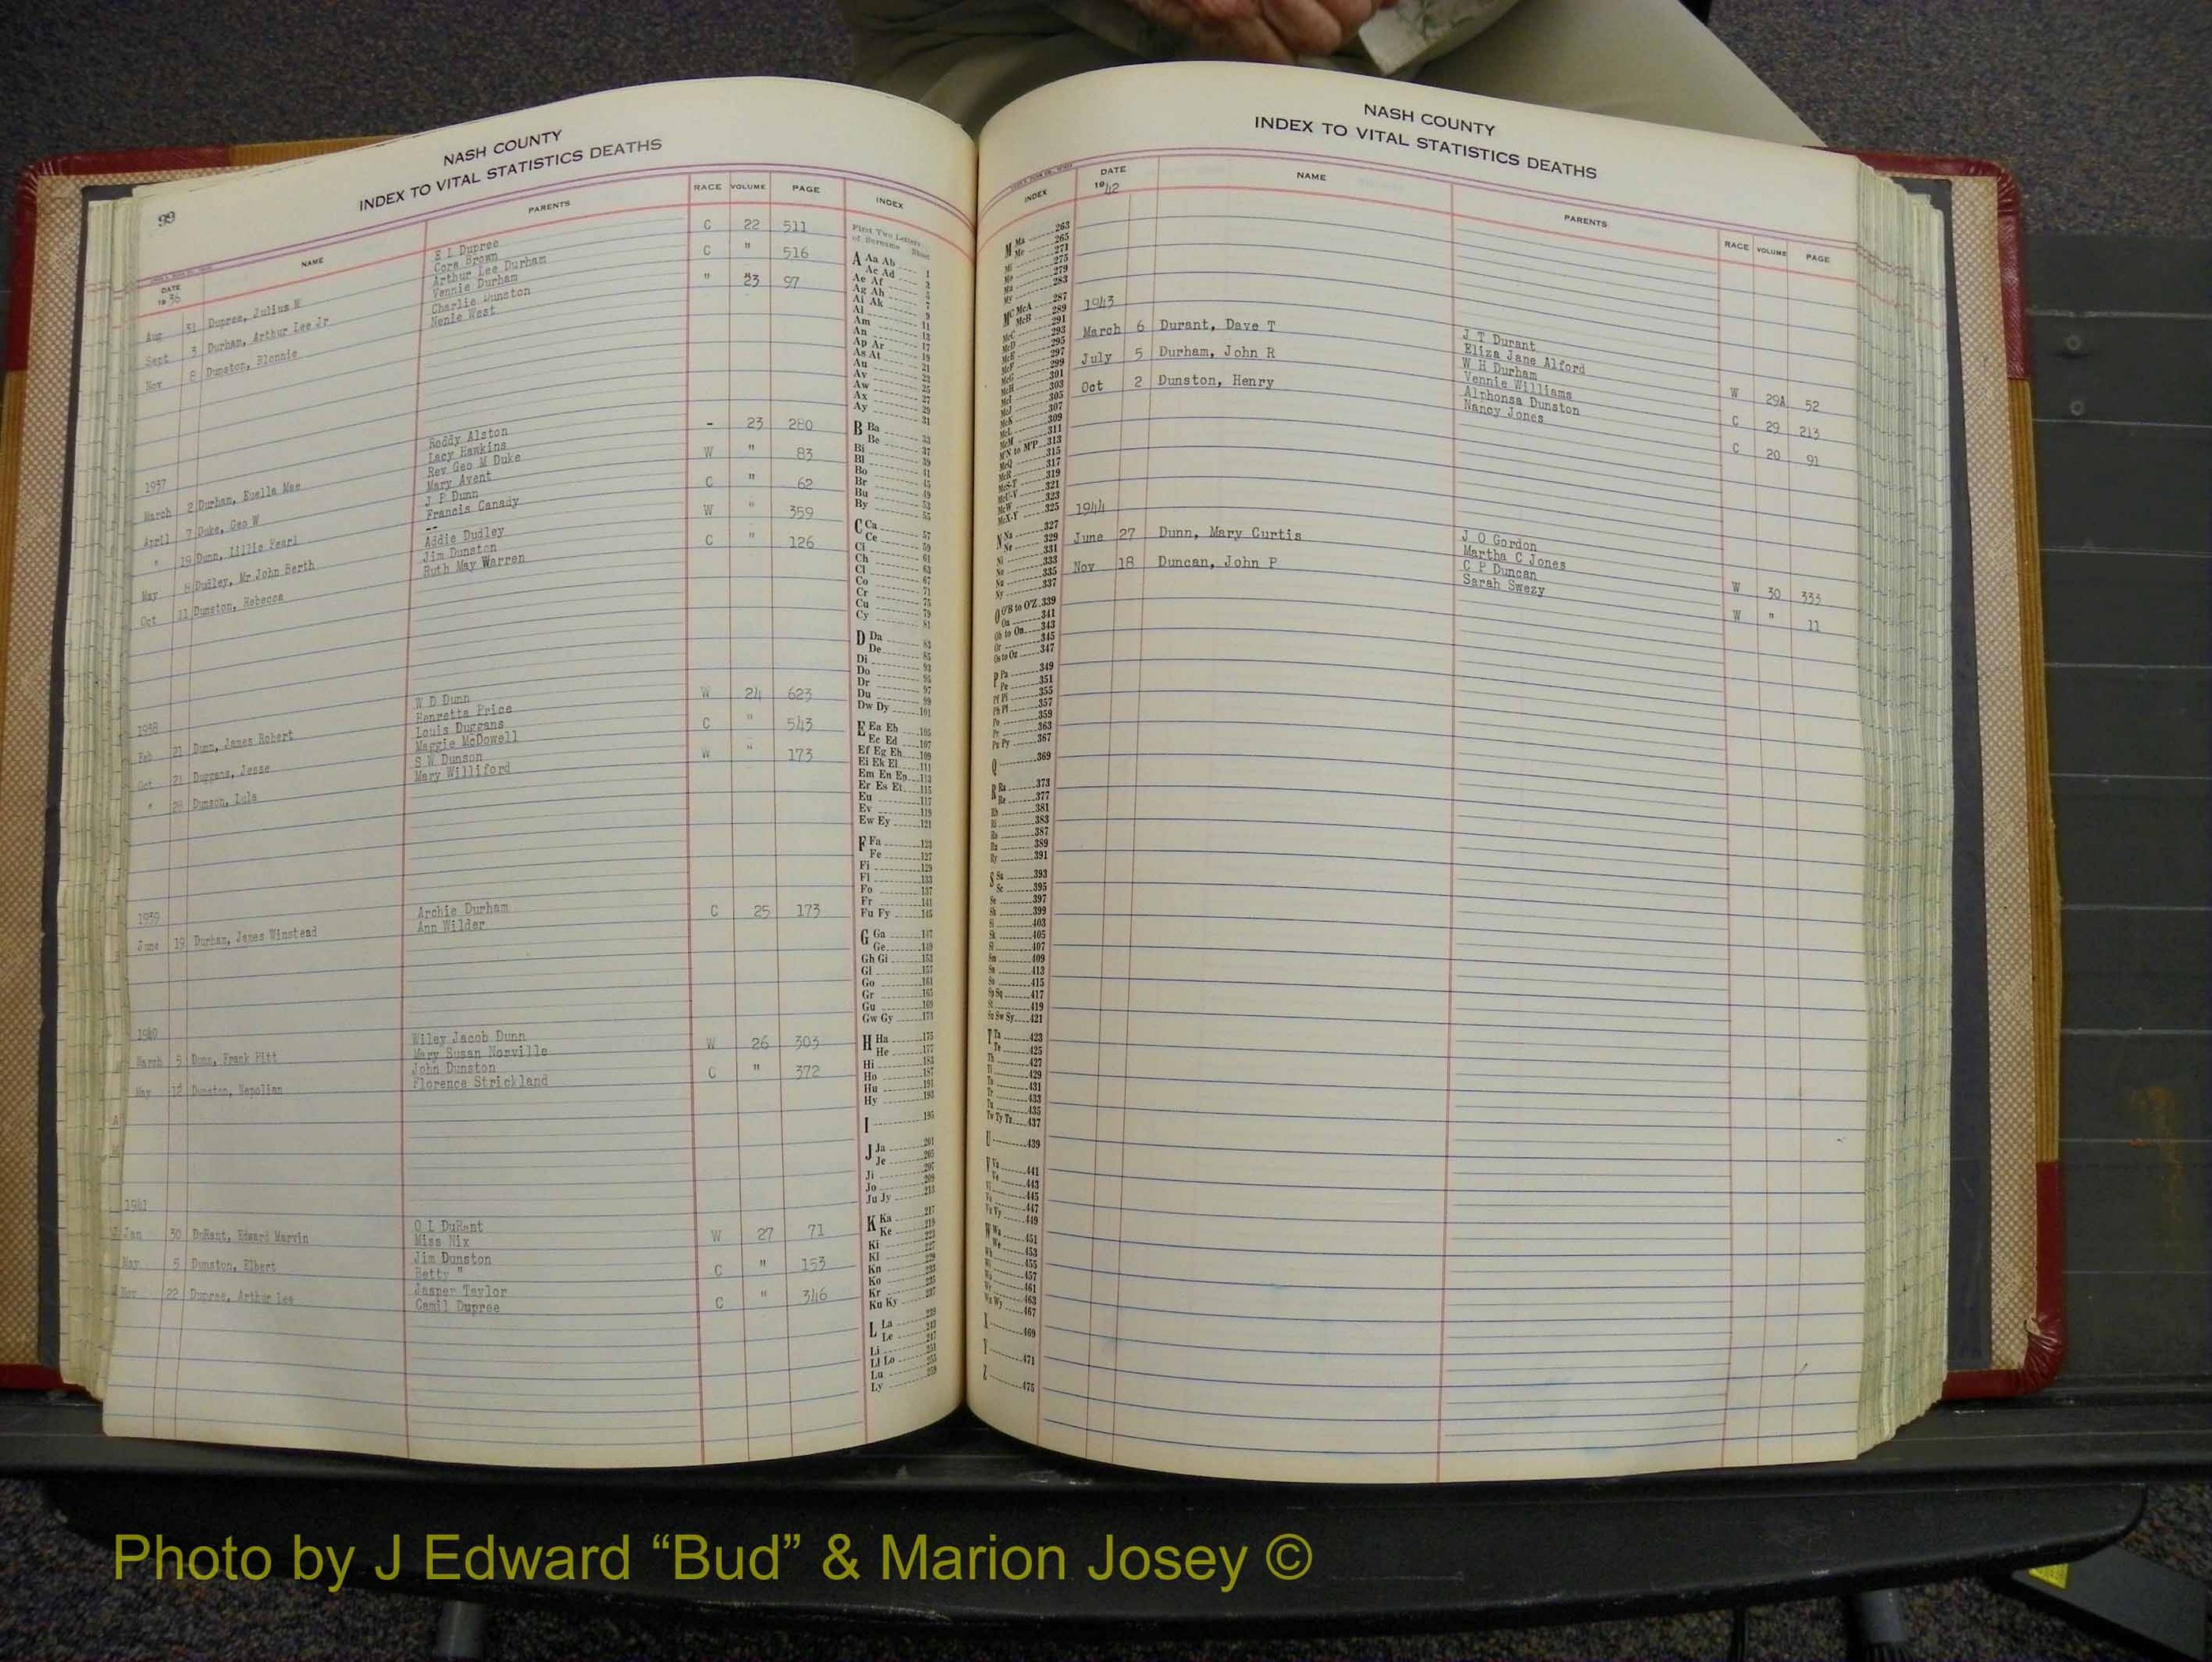 99
NASH COUNTY
INDEX TO VITAL STATISTICS DEATHS
DATE NAME PARENTS RACE VOLUME PAGE
1936
Aug 31 Dupree, Julius M E L Dupree C 22 511
Cora Brown
Sept 3 Durham, Arthur Lee Jr Arthur Lee Durham C " 516
Vennie Durham
Nov 8 Dunston, Blonnie Charlie Dunston " 23 97
Nenie West
1937
March 2 Durham, Euella Mae Roddy Alston - 23 280
Lacy Hawkins
April 7 Duke, Geo W Rev Geo M Duke W " 83
Mary Avent
" 19 Dunn, Lillie Pearl J P Dunn C " 62
Francis Canady
May 8 Dudley, Mr John Berth -- W " 359
Addie Dudley
Oct 11 Dunston, Rebecca Jim Dunston C " 126
Ruth May Warren
1938
Feb 21 Dunn, James Robert W D Dunn W 24 623
Henretta Price
Oct 21 Duggans, Jesse Louis Duggans C " 543
Maggie McDowell
" 28 Dunson, Lula S W Dunson W " 173
Mary Williford
1939
June 19 Durham, James Winstead Archie Durham C 25 173
Ann Wilder
1940
March 5 Dunn, Frank Pitt Wiley Jacob Dunn W 26 303
Mary Susan Norville
May 12 Dunston, Nepolian John Dunston C " 372
Florence Strickland
1941
Jan 30 DuRant, Edward Marvin O L DuRant W 27 71
Miss Nix
May 5 Dunston, Elbert Jim Dunston C " 153
Betty "
Nov 22 Dupree, Arthur Lee Jasper Taylor C " 346
Camil Dupree
INDEX
First Two Letters
of Surname Sheet
A Aa Ab 1
Ac Ad 3
Ae Af 5
Ag Ah 7
Ai Ak 9
Al 11
Am 13
An 17
Ap Ar 19
As At 21
Au 23
Av 25
Aw 27
Ax 29
Ay 31
B Ba 33
Be 37
Bi 39
Bl 41
Bo
Br 49
Bu 53
By 55
C Ca 57
Ce 59
Ch
Cl 67
Co 71
Cr 75
Cu 79
Cy 81
D Da 83
De 85
Di 93
Do 95
Dr 97
Du 99
Dw Dy 101
E Ea Eb 105
Ec Ed 107
Ef Eg Eh 109
Ei Ek El 111
Em En Ep 113
Er Es Et 115
Eu 117
Ev 119
Ew Ey 121
F Fa 123
Fe 127
Fi 129
Fl 133
Fo 137
Fr 141
Fu Fy 145
G Ga 147
Ge 149
Gh Gi 153
Gl 157
Go 161
Gr 165
Gu 169
Gw Gy 173
H Ha 175
He 177
Hi 183
Ho 187
Hu 191
Hy 193
I 195
J Ja 201
Je 205
Ji 207
Jo 209
Ju Jy 213
K Ka 217
Ke 219
Ki 223
Kl 227
Kn
Ko
Kr 235
Ku Ky 237
L La 239
Le 243
Li 247
Ll Lo
Lu
Ly 259
NASH COUNTY
INDEX TO VITAL STATISTICS DEATHS
INDEX DATE NAME PARENTS RACE VOLUME PAGE
1942
1943
March 6 Durant, Dave T J T Durant W 29A 52
Eliza Jane Alford
July 5 Durham, John R W H Durham C 29 213
Vennie Williams
Oct 2 Dunston, Henry Alphonsa Dunston C 20 91
Nancy Jones
1944
June 27 Dunn, Mary Curtis J O Gordon W 30 333
Martha C Jones
Nov 18 Duncan, John P C P Duncan W " 11
Sarah Swezy
M Ma 263
Me 265
Mi 271
Mo 275
Mu 279
My 283
Mc McA 287
McB 289
McC 291
McD 293
McE 295
McF 297
McG 299
McH 301
McI 303
McJ 305
McK 307
McL 309
McM 311
M'N to M'P 313
McQ 315
McR 317
McS-T 319
McU-V 321
McW 323
McX-Y 325
N Na 327
Ne 329
Ni 331
No 333
Nu 335
Ny 337
O O'B to O'Z 339
Oa 341
Ob to On 343
Or 345
Os to Oz 347
P Pa 349
Pe 351
Pf Pi 355
Ph Pl 357
Po 359
Pr 363
Pu Py 367
Q 369
R Ra 373
Re 377
Rh 381
Ri 383
Ro 387
Ru 389
Ry 391
S Sa 393
Sc 395
Se 397
Sh 399
Si 403
Sk 405
Sl 407
Sm 409
Sn 413
So 415
Sp Sq 417
St 419
Su Sw Sy 421
T Ta 423
Te 425
Th 427
Ti 429
To 431
Tr 433
Tu 435
Tw Ty Tz 437
U 439
V Va 441
Ve 443
Vi 445
Vo 447
Vu Vy 449
W Wa 451
We 453
Wh 455
Wi 457
Wo 461
Wr 463
Wu Wy 467
X 469
Y 471
Z 475
Photo by J Edward “Bud” & Marion Josey ©